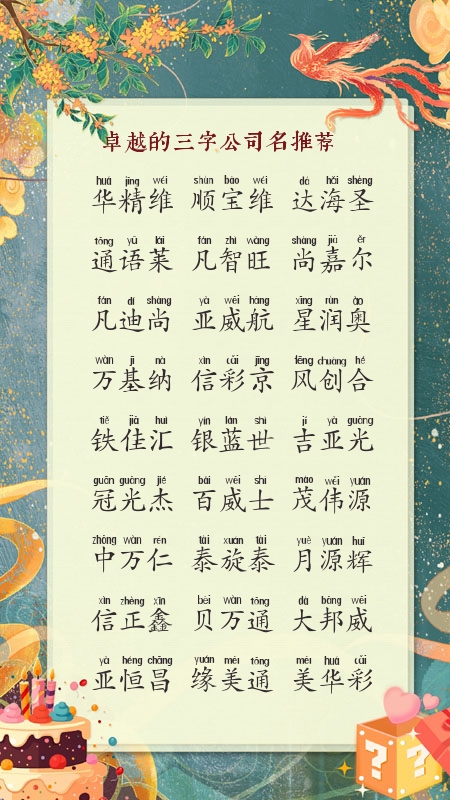 卓越的三字公司名推荐
huá jīng wéi shùn bǎo wéi dá hǎi shèng
华精维 顺宝维 达海圣
tōng yǔ lái fán zhì wàng shàng jiā ěr
通语莱 凡智旺 尚嘉尔
fán dí shàng yà wēi háng xīng rùn ào
凡迪尚 亚威航 星润奥
wàn jī nà xìn cǎi jīng fēng chuàng hé
万基纳 信彩京 风创合
tiě jiā huì yín lán shì jí yà guāng
铁佳汇 银蓝世 吉亚光
guān guāng jié bǎi wēi shì mào wěi yuán
冠光杰 百威士 茂伟源
zhōng wàn rén tài xuán tài yuè yuán huī
中万仁 泰旋泰 月源辉
xìn zhèng xīn bèi wàn tōng dà bāng wēi
信正鑫 贝万通 大邦威
yà héng chāng yuán měi tōng měi huá cǎi
亚恒昌 缘美通 美华彩
? ?